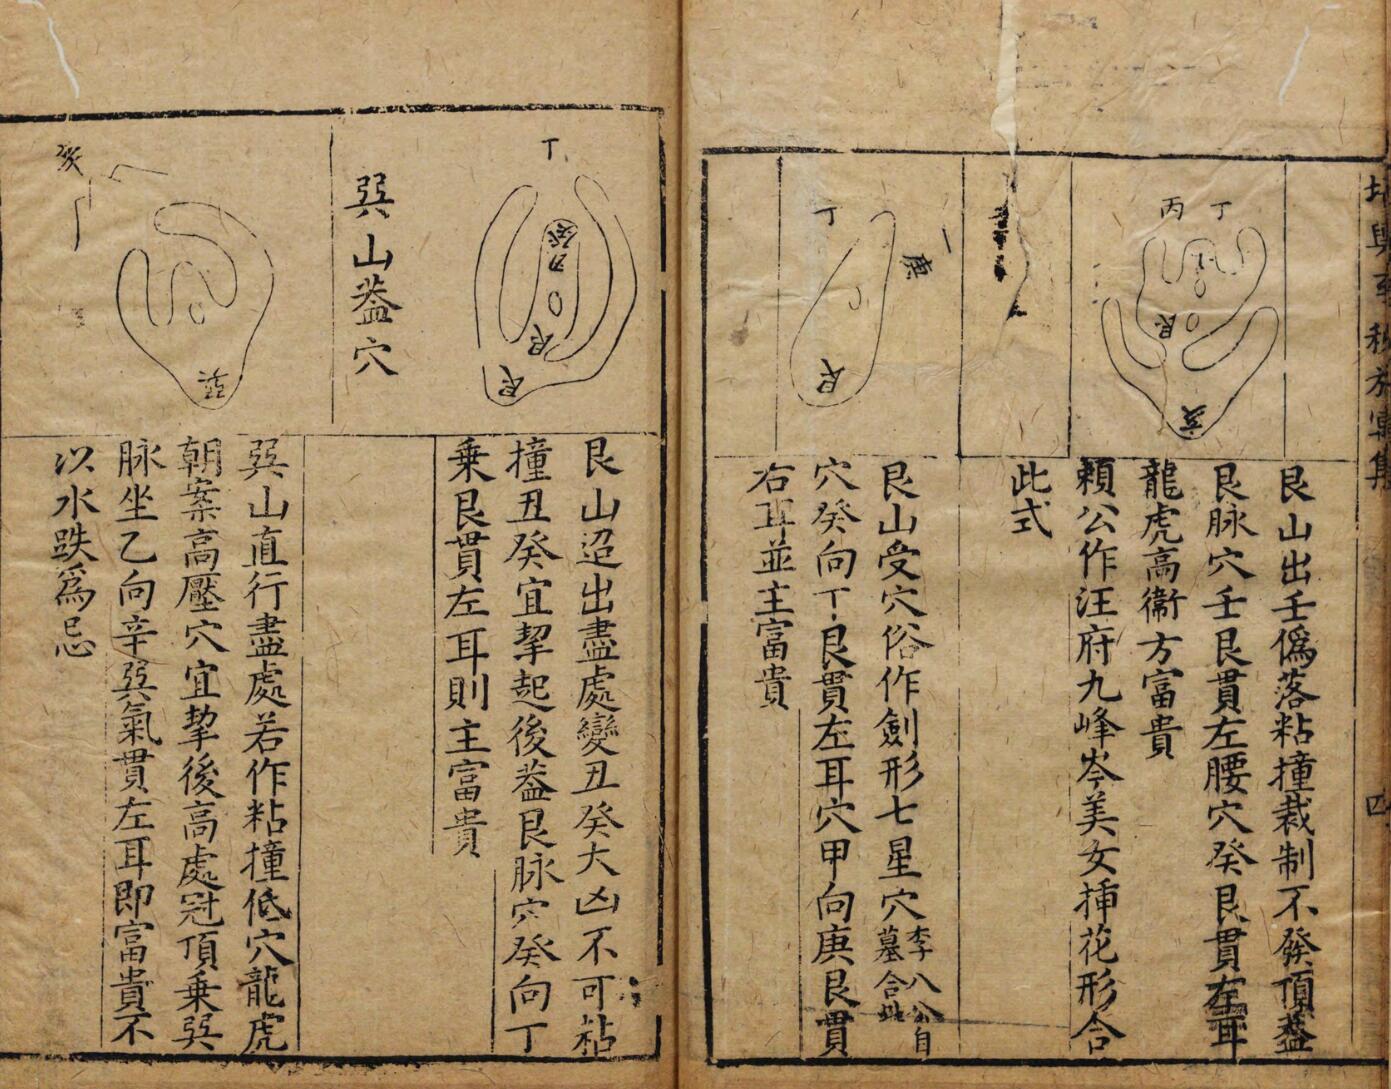 丙
丁
艮
亥
艮山出壬僞落粘撞裁制不發頂葢
艮脉穴壬艮貫左腰穴癸艮貫左耳
龍虎高衞方富貴
賴公作汪府九峰岑美女揷花形合
此式
丁
庚
艮
艮山受穴俗作劍形七星穴
李八公自
墓合此
穴癸向丁艮貫左耳穴甲向庚艮貫
右耳並主富貴
丁
癸
丑
艮
艮
艮山迢出盡處變丑癸大凶不可粘
撞丑癸宜挈起後葢艮脉穴癸向丁
乗艮貫左耳則主富貴
巽山葢穴
亥
巽
巽山直行盡處若作粘撞低穴龍虎
朝案高壓穴宜挈後高處冠頂乗巽
脉坐乙向辛巽氣貫左耳即富貴不
以水跌爲忌